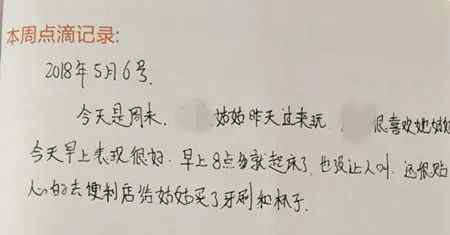 本周点滴记录:
2018年5月6号.
今天是周末. 姑姑昨天过来玩 很喜欢她姑姑
今天早上表现很好. 早上8点多就起床了, 也没让人叫. 还很贴
心的去便利店给姑姑买了牙刷和杯子.